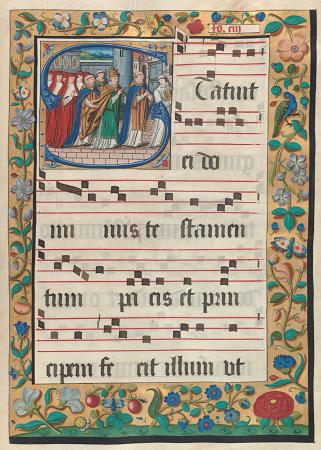 fo. ciij
Statuit
ei do
mi nus te stamen
tum pa cis et prin
cipem fe cit illum vt